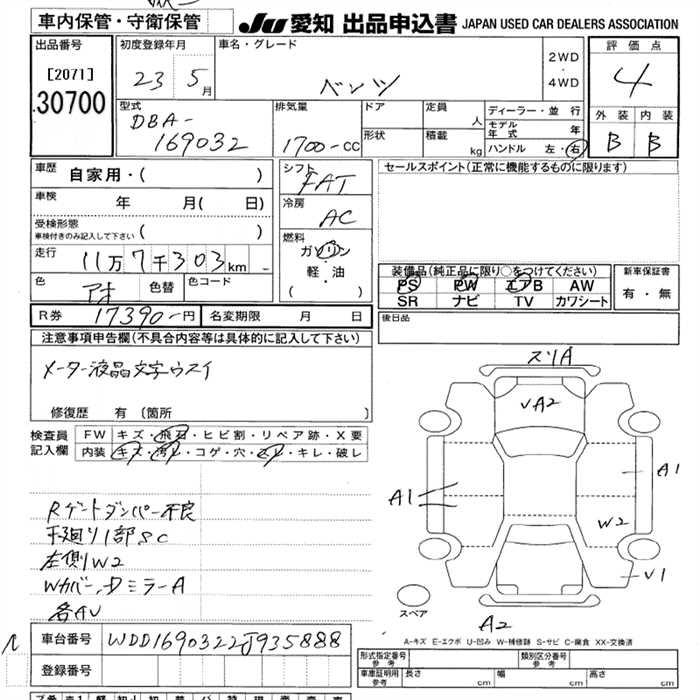 車内保管・守衛保管
JU 愛知 出品申込書 JAPAN USED CAR DEALERS ASSOCIATION
出品番号
[2071]
30700
初度登録年月
23 5月
車名・グレード
ベンツ
2WD
・
4WD
評価点
4
外装 内装
B B
型式
DBA-
169032
排気量
1700-cc
ドア
形状
定員
人
積載
kg
ディーラー・並行
モデル年式 年
ハンドル 左・右
車歴
自家用・( )
車検
年 月( 日)
受検形態
車検付きのみ記入して下さい ( )
走行
11万7千303km
色
アオ
色替
色コード
R券 17390-円 名変期限 月 日
シフト
FAT
冷房
AC
燃料
ガソリン
・
軽・油
( )
セールスポイント(正常に機能するものに限ります)
装備品(純正品に限り○をつけてください)
PS PW エアB AW
SR ナビ TV カワシート
新車保証書
有・無
後日品
注意事項申告欄(不具合内容等は具体的に記入して下さい)
メーター液晶文字ウスイ
修復歴 有〔箇所 〕
検査員
記入欄
FW キズ・飛石・ヒビ割・リペア跡・X要
内装 キズ・汚レ・コゲ・穴・スレ・キレ・破レ
Rゲートダンパー不良
下廻り1部SC
左側W2
Wカバー,Dミラ-A
各AU
スリA
VA2
A1
A1
W2
V1
A2
スペア
A-キズ E-エクボ U-凹み W-補修跡 S-サビ C-腐食 XX-交換済
車台番号 WDD1690322J935888
登録番号
形式指定番号
参考
類別区分番号
参考
車庫証明用
参考
長さ cm 幅 cm 高さ cm